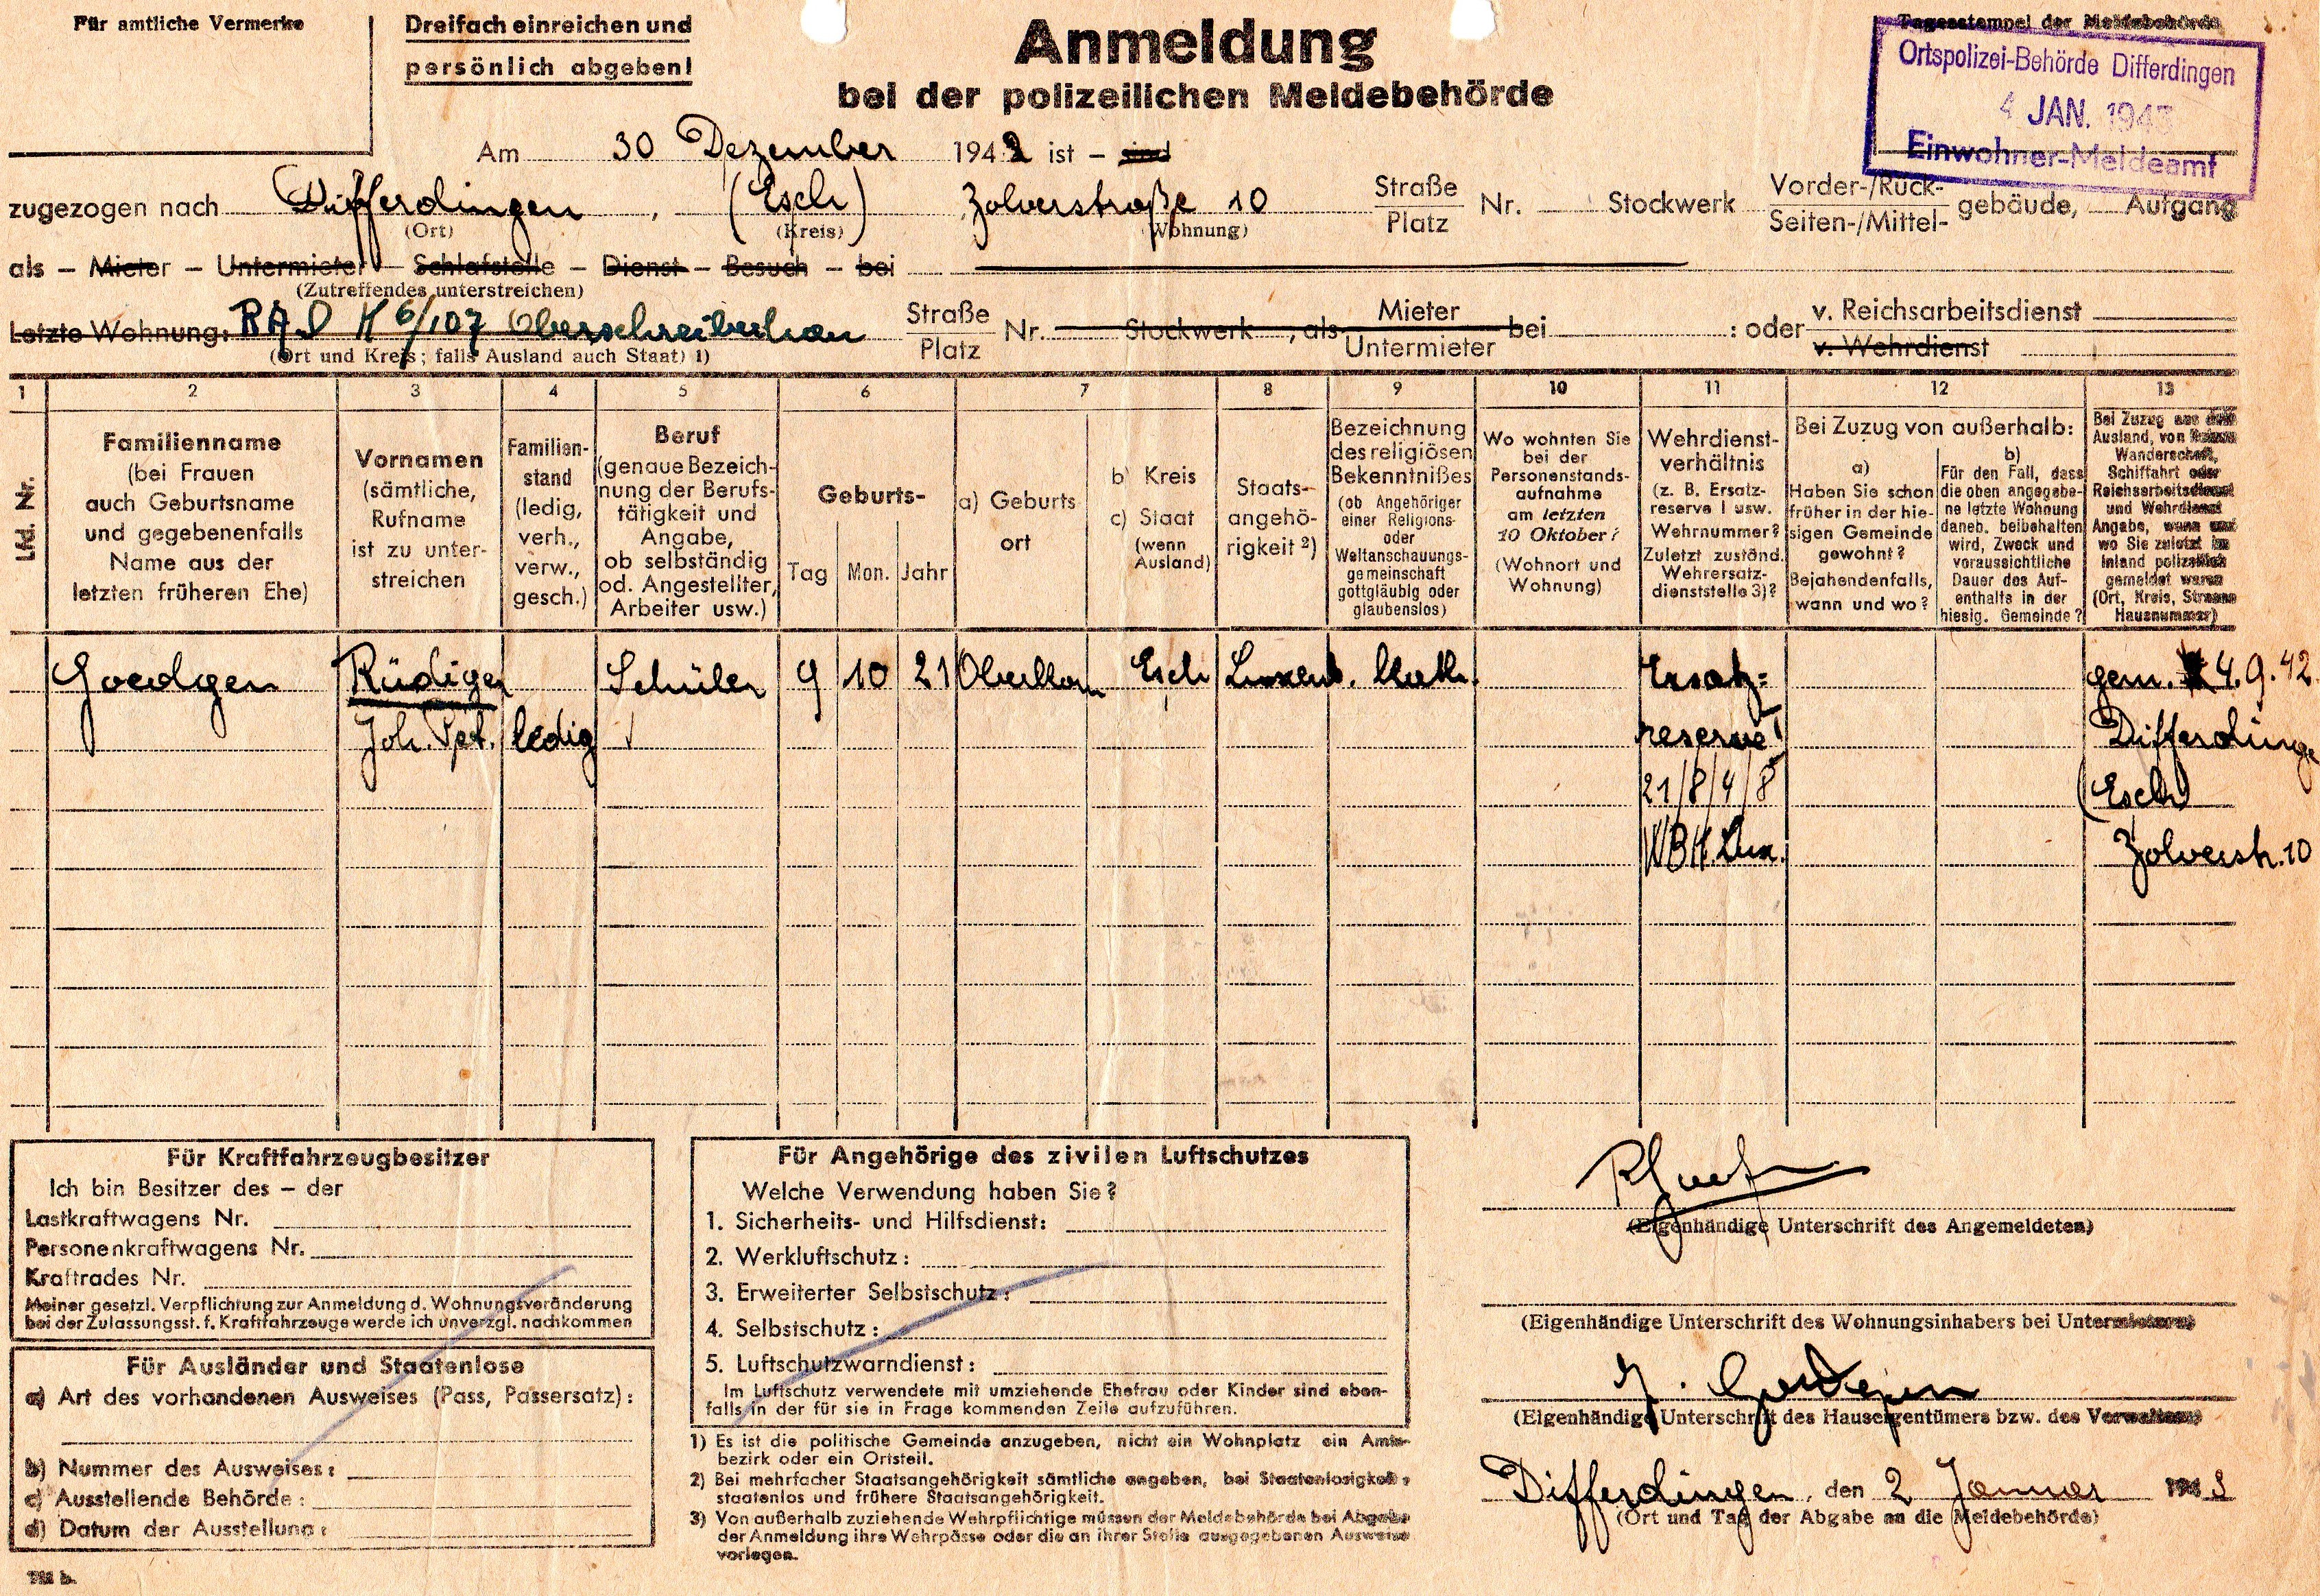 Für amtliche Vermerke
Dreifach einreichen und
persönlich abgeben!
Anmeldung
bei der polizeilichen Meldebehörde
Tagesstempel der Meldebehörde
Ortspolizei-Behörde Differdingen
4 JAN. 1943
Einwohner-Meldeamt
Am 30 Dezember 1942 ist – sind
zugezogen nach Differdingen , (Esch) Zolverstraße 10 Straße Platz Nr. Stockwerk Vorder-/Rück- Seiten-/Mittel- gebäude, Aufgang
(Ort) (Kreis) (Wohnung)
als – Mieter – Untermieter – Schlafstelle – Dienst – Besuch – bei
(Zutreffendes unterstreichen)
Letzte Wohnung: RAD K 6/107 Oberschreiberhau Straße Platz Nr. Stockwerk , als Mieter Untermieter bei : oder v. Reichsarbeitsdienst v. Wehrdienst
(Ort und Kreis; falls Ausland auch Staat) 1)
1 2 3 4 5 6 7 8 9 10 11 12 13
Lfd. Nr.
Familienname
(bei Frauen
auch Geburtsname
und gegebenenfalls
Name aus der
letzten früheren Ehe)
Vornamen
(sämtliche,
Rufname
ist zu unter-
streichen
Familien-
stand
(ledig,
verh.,
verw.,
gesch.)
Beruf
(genaue Bezeich-
nung der Berufs-
tätigkeit und
Angabe,
ob selbständig
od. Angestellter,
Arbeiter usw.)
Geburts-
Tag Mon. Jahr
a) Geburts
ort
b) Kreis
c) Staat
(wenn
Ausland)
Staats-
angehö-
rigkeit 2)
Bezeichnung
des religiösen
Bekenntnißes
(ob Angehöriger
einer Religions-
oder
Weltanschauungs-
gemeinschaft
gottgläubig oder
glaubenslos)
Wo wohnten Sie
bei der
Personenstands-
aufnahme
am letzten
10 Oktober?
(Wohnort und
Wohnung)
Wehrdienst-
verhältnis
(z. B. Ersatz-
reserve I usw.
Wehrnummer?
Zuletzt zuständ.
Wehrersatz-
dienststelle 3)?
Bei Zuzug von außerhalb:
a)
Haben Sie schon
früher in der hie-
sigen Gemeinde
gewohnt?
Bejahendenfalls,
wann und wo?
b)
Für den Fall, dass
die oben angegebe-
ne letzte Wohnung
daneb. beibehalten
wird, Zweck und
voraussichtliche
Dauer des Auf-
enthalts in der
hiesig. Gemeinde?
Bei Zuzug aus dem
Ausland, von Reisen
Wanderschaft,
Schiffahrt oder
Reichsarbeitsdienst
und Wehrdienst
Angabe, wann und
wo Sie zuletzt im
Inland polizeilich
gemeldet waren
(Ort, Kreis, Strasse
Hausnummer)
Goedgen Rüdiger Schüler 9 10 21 Oberkorn Esch Luxenb. Kath. Ersatz= gem. 4.9.42
Joh. Pet. ledig reserve I Differdinge
21/8/4/8 (Esch)
WBK Lux. Zolverstr. 10
Für Kraftfahrzeugbesitzer
Ich bin Besitzer des – der
Lastkraftwagens Nr.
Personenkraftwagens Nr.
Kraftrades Nr.
Meiner gesetzl. Verpflichtung zur Anmeldung d. Wohnungsveränderung
bei der Zulassungsst. f. Kraftfahrzeuge werde ich unverzgl. nachkommen
Für Ausländer und Staatenlose
a) Art des vorhandenen Ausweises (Pass, Passersatz):
b) Nummer des Ausweises:
c) Ausstellende Behörde:
d) Datum der Ausstellung:
Für Angehörige des zivilen Luftschutzes
Welche Verwendung haben Sie?
1. Sicherheits- und Hilfsdienst:
2. Werkluftschutz:
3. Erweiterter Selbstschutz:
4. Selbstschutz:
5. Luftschutzwarndienst:
Im Luftschutz verwendete mit umziehende Ehefrau oder Kinder sind eben-
falls in der für sie in Frage kommenden Zeile aufzuführen.
1) Es ist die politische Gemeinde anzugeben, nicht ein Wohnplatz ein Amts-
bezirk oder ein Ortsteil.
2) Bei mehrfacher Staatsangehörigkeit sämtliche angeben, bei Staatenlosigkeit,
staatenlos und frühere Staatsangehörigkeit.
3) Von außerhalb zuziehende Wehrpflichtige müssen der Meldebehörde bei Abgabe
der Anmeldung ihre Wehrpässe oder die an ihrer Stelle ausgegebenen Ausweise
vorlegen.
(Eigenhändige Unterschrift des Angemeldeten)
(Eigenhändige Unterschrift des Wohnungsinhabers bei Untermietern)
(Eigenhändige Unterschrift des Hauseigentümers bzw. des Verwalters)
Differdingen, den 2 Januar 1943
(Ort und Tag der Abgabe an die Meldebehörde)